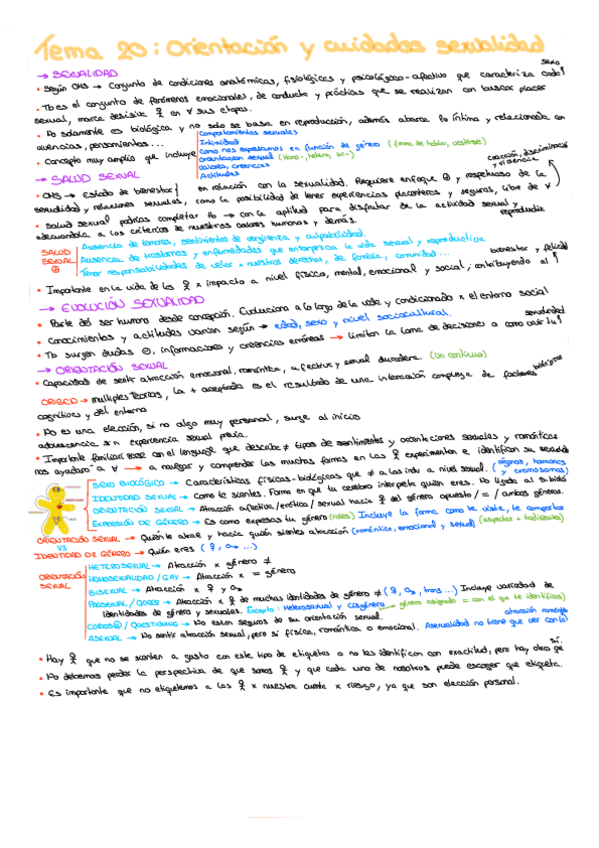 Tema 20: Orientación y cuidados sexualidad
→ SEXUALIDAD
• Según OMS → Conjunto de condiciones anatómicas, fisiológicas y psicológico-afectivo que caracteriza cada sexo
• Tb es el conjunto de fenómenos emocionales, de conducta y prácticas que se realizan con buscar placer
sexual, marca decisiva ♀ en ∀ sus etapas.
• No solamente es biológica y no solo se basa en reproducción, además abarca lo íntimo y relacionado con
vivencias, pensamientos...
• Concepto muy amplio que incluye
comportamientos sexuales
Intimidad
como nos expresamos en función de género (forma de hablar, vestirse)
orientación sexual (Homo-, hetero, bi-)
valores, creencias
Actitudes
→ SALUD SEXUAL
coacción, discriminación y violencia
• OMS → Estado de bienestar en relación con la sexualidad. Requiere enfoque ⊕ y respetuoso de la
sexualidad y relaciones sexuales, como la posibilidad de tener experiencias placenteras y seguras, libre de ∀
• Salud sexual podrías completar → con la aptitud para disfrutar de la actividad sexual y reproductiva
adecuándola a los criterios de nuestros valores humanos y demás.
SALUD SEXUAL ⊕
Ausencia de temores, sentimientos de vergüenza y culpabilidad.
Ausencia de trastornos y enfermedades que entorpezca la vida sexual y reproductiva
Tener responsabilidades de velar x nuestros derechos, de familia, comunidad...
• Importante en la vida de las ♀ x impacto a nivel física, mental, emocional y social, contribuyendo al bienestar y felicidad
→ EVOLUCIÓN SEXUALIDAD
• Parte del ser humano desde concepción. Evoluciona a lo largo de la vida y condicionado x el entorno social
• Conocimientos y actitudes varían según → edad, sexo y nivel sociocultural.
• Tb surgen dudas ⊖, informaciones y creencias erróneas → limitan la toma de decisiones a como vivir tu sexualidad
→ ORIENTACIÓN SEXUAL
• Capacidad de sentir atracción emocional, romántica, afectiva y sexual duradera (Un continuo)
ORIGEN → múltiples teorías, la + aceptada es el resultado de una interacción compleja de factores biológicos
cognitivos y del entorno
• No es una elección, si no algo muy personal, surge al inicio
adolescencia sin experiencia sexual previa.
• Importante familiarizarse con el lenguaje que describe ≠ tipos de sentimientos y orientaciones sexuales y románticas
nos ayudará a ∀ → a navegar y comprender las muchas formas en las ♀ experimentan e identifican su sexualidad
SEXO BIOLÓGICO → Características físicas-biológicas que ≠ a los indv a nivel sexual. (órganos, hormonas y cromosomas)
IDENTIDAD SEXUAL → Como te sientes. Forma en que tu cerebro interpreta quién eres. No ligado al s. biológico
ORIENTACIÓN SEXUAL → Atracción afectiva/erótica/sexual hacia ♀ del género opuesto / = / ambos géneros.
EXPRESIÓN DE GÉNERO → Es como expresas tu género (roles) Incluye la forma como te viste, te comportas (aspectos + tradicionales)
ORIENTACIÓN SEXUAL → Quién te atrae y hacia quién sientes atracción (romántica, emocional y sexual)
VS
IDENTIDAD DE GÉNERO → Quién eres (♀, ♂ ...)
ORIENTACIÓN SEXUAL
HETEROSEXUAL → Atracción x género ≠
HOMOSEXUALIDAD / GAY → Atracción x = género
BISEXUAL → Atracción x ♀ y ♂
PANSEXUAL / QUEER → Atracción x ♀ de muchas identidades de género ≠ (♀, ♂, trans...) Incluye variedad de
identidades de género y sexuales. Excepto: Heterosexual y cisgénero → género asignado = con el que te identificas)
CURIOS@ / QUESTIONING → No estan seguros de su orientación sexual.
ASEXUAL → No sentir atracción sexual, pero sí física, romántica o emocional. Asexualidad no tiene que ver con la atracción romántica
• Hay ♀ que no se sienten a gusto con este tipo de etiquetas o no les identifican con exactitud, pero hay otra que sí.
• No debemos perder la perspectiva de que somos ♀ y que cada uno de nosotros puede escoger que etiqueta.
• Es importante que no etiquetemos a las ♀ x nuestra cuenta x riesgo, ya que son elección personal.